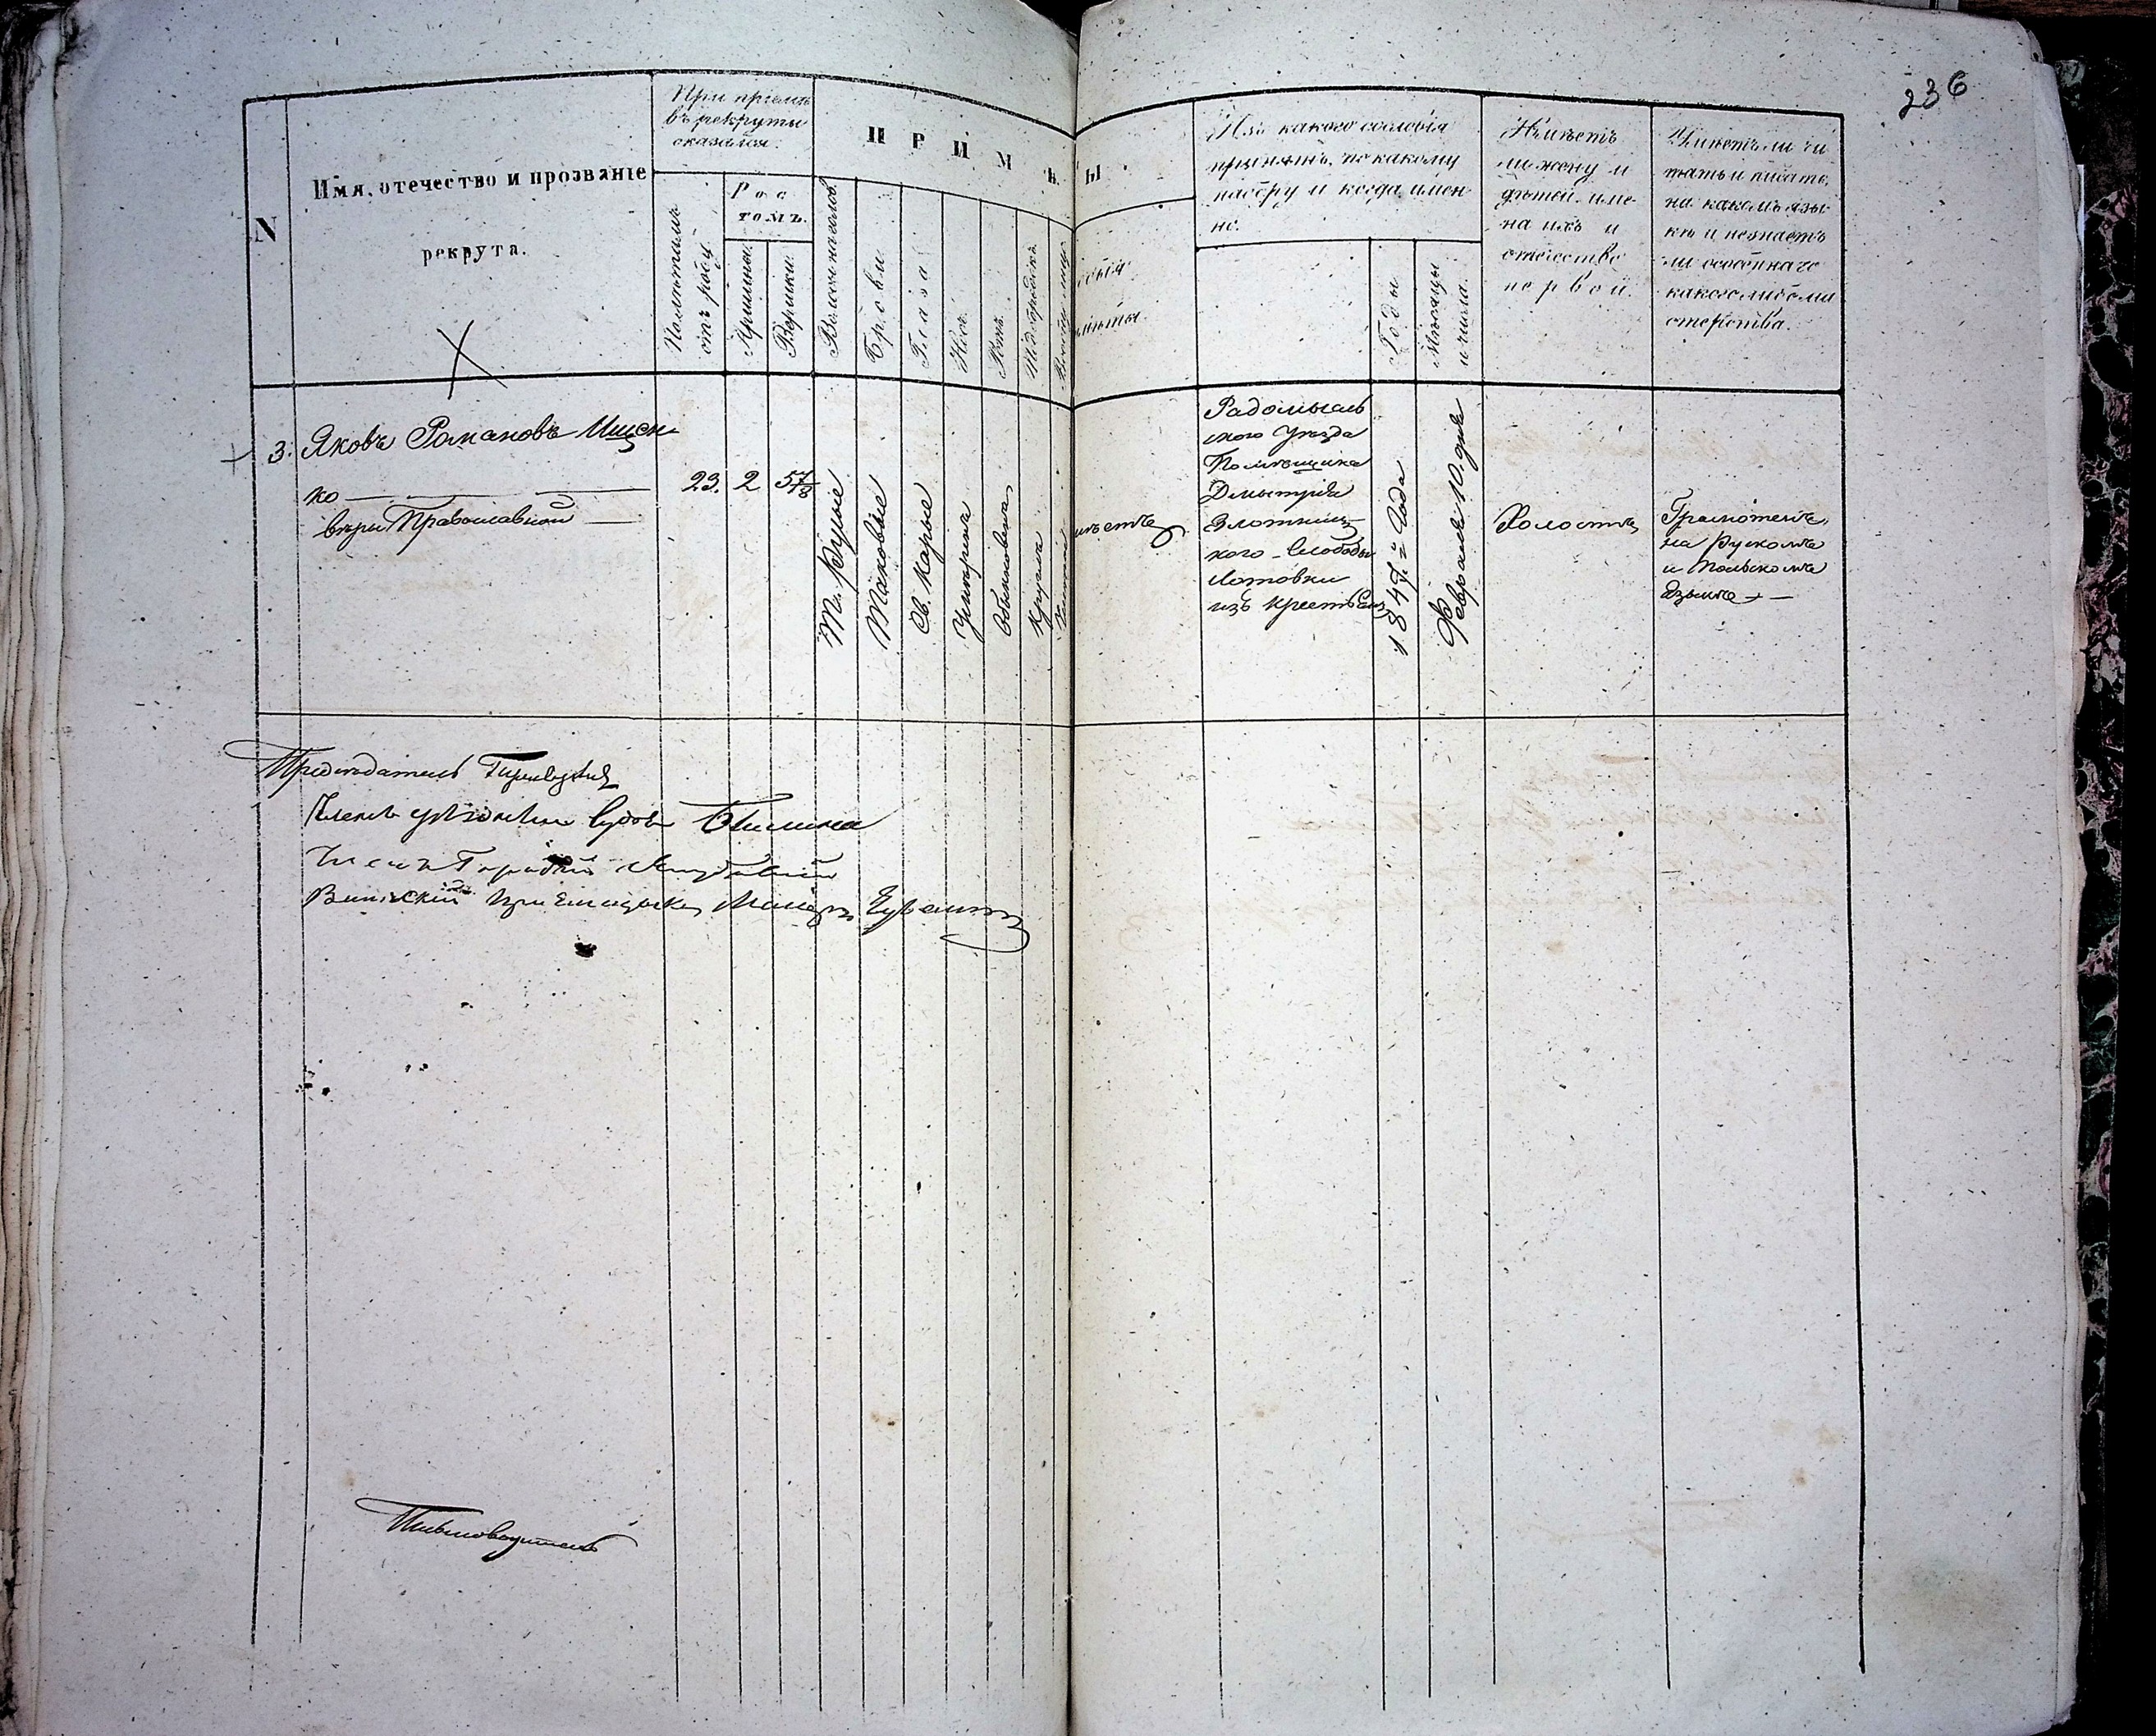 236
N
Имя, отечество и прозваніе
рекрута.
При пріемѣ
въ рекруты
оказался:
Полѣтамъ
отъ роду
Рос
томъ.
Аршины.
Вершки.
ПРИМѢ
ТЫ.
Волосы на голов.
Брови
Глаза
Носъ.
Ротъ.
Подбородокъ.
Изъ какого сословія
принятъ, по какому
набору и когда имен
но.
Годы
Мѣсяцы
и числа.
Имѣетъ
ли жену и
дѣтей, име
на ихъ и
отечество
первой.
Умѣетъ ли чи
тать и писать,
на какомъ язы
кѣ и незнаетъ
ли особеннаго
какого либо ма
стерства.
3. Яковъ Романовъ Ищен
ко
вѣры Православной
23.
2
5 7/8
Т. Русые
Таковые
Св. Карые
Умѣрѣнъ
Обыкновенъ
Круглъ
Радомысль
ского Уезда
Помѣщика
Дмытрія
Злотниц
кого Слободы
Лотовки
изъ крестьянъ
184 года
Февраля 10. дня
Холостъ
Грамотенъ,
на Рускомъ
и Польскомъ
Языке
Председатель
Членъ уѣзднаго Суда
Членъ
Воинскій Пріемщикъ Маіоръ
Письмоводитель